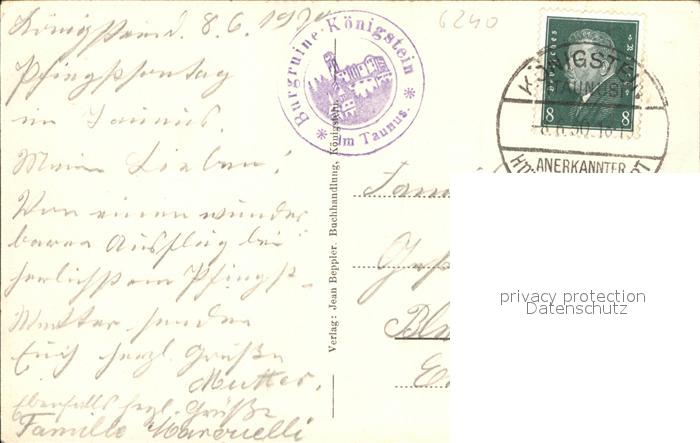 Königstein d. 8.6.1930
6240
Pfingstsonntag
im Taunus.
Meine Lieben!
Von einem wunder
baren Ausflug bei
herrlichstem Pfingst-
Wetter senden
Euch herzl. Grüße
Mutter.
Ebenfalls herzl. Grüße
Familie
Burgruine Königstein
im Taunus.
Verlag: Jean Beppler, Buchhandlung, Königstein.
Deutsches
8 8
KÖNIGSTEIN
(TAUNUS)
ANERKANNTER
privacy protection
Datenschutz